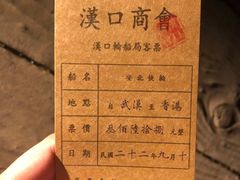 漢口商會
漢口輪船局客票
船名 安北快輪
地點 自 武漢 至 香港
票價 叁佰陸拾捌 元整
日期 民國二十二年九月十